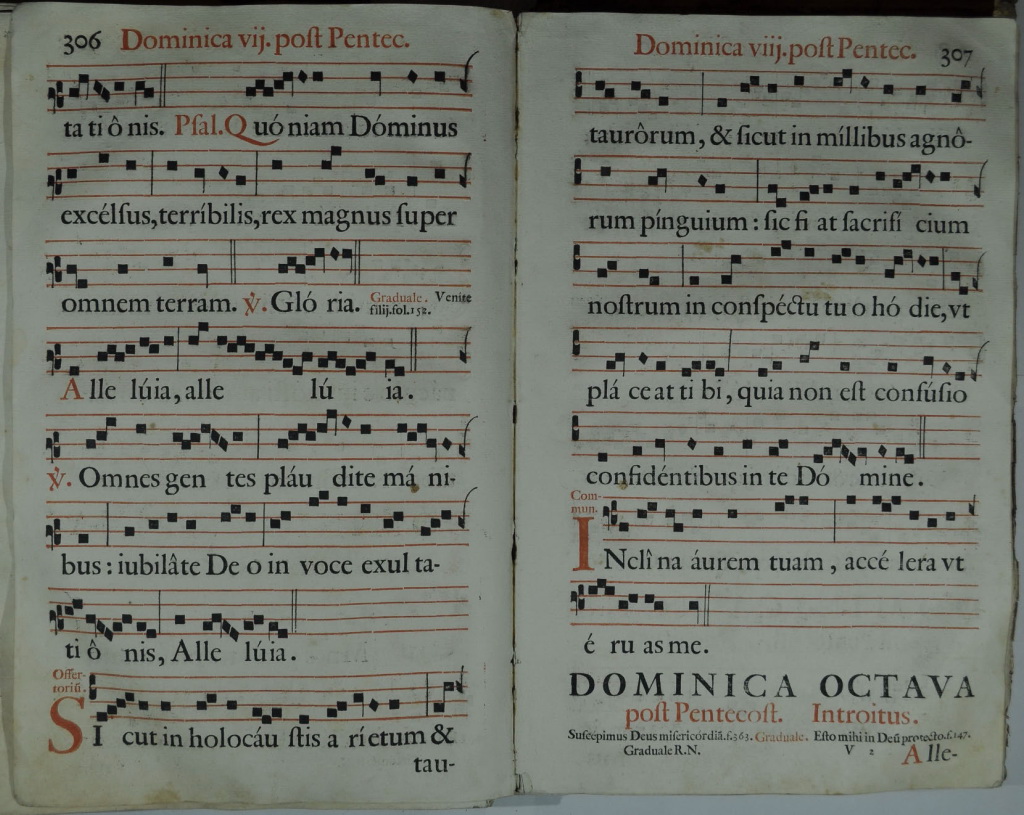 306 Dominica vij. poſt Pentec.
ta ti ô nis. Pſal. Q uó niam Dóminus
excélſus, terríbilis, rex magnus ſuper
omnem terram. ℣. Gló ria. Graduale. Venite
filij. fol. 152.
A lle lúia, alle lú ia.
℣. Omnes gen tes pláu dite má ni-
bus : iubilâte De o in voce exul ta-
ti ô nis, Alle lúia.
Offer-
toriũ.
S I cut in holocáu ſtis a ríetum &
tau-
Dominica viij. poſt Pentec. 307
taurôrum, & ſicut in míllibus agnô-
rum pínguium : ſic fi at ſacrifí cium
noſtrum in conſpéctu tu o hó die, vt
plá ce at ti bi, quia non eſt confúſio
confidéntibus in te Dó mine.
Com-
mun.
I Nclî na áurem tuam , accé lera vt
é ru as me.
DOMINICA OCTAVA
poſt Pentecoſt. Introitus.
Suſcepimus Deus miſericórdiã. f. 363. Graduale. Eſto mihi in Deũ protecto. f. 147.
Graduale R. N. V 2 A lle-